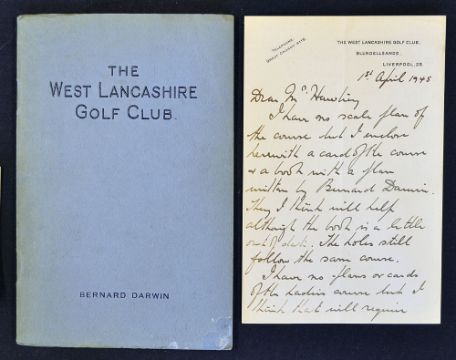 THE
WEST LANCASHIRE
GOLF CLUB.
BERNARD DARWIN
TELEPHONE,
GREAT CROSBY
THE WEST LANCASHIRE GOLF CLUB,
BLUNDELLSANDS,
LIVERPOOL, 23.
1st April 1948
Dear Mr
I have no scale plan of
the course but I enclose
herewith a card of the course
& a book with a plan
written by Bernard Darwin.
They I think will help
although the book is a little
out of date. The holes still
follow the same course.
I have no plans or cards
of the ladies course but I
think that will require